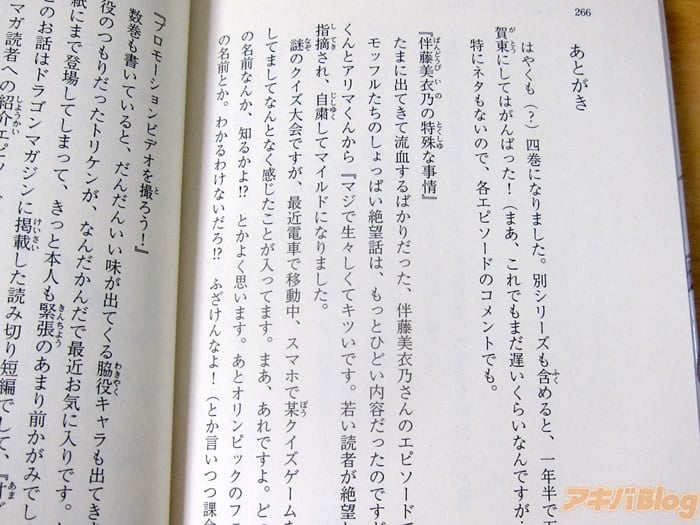 266
あとがき
はやくも(?)四巻になりました。別シリーズも含めると、一年半で
賀東にしてはがんばった!(まあ、これでもまだ遅いくらいなんですが
特にネタもないので、各エピソードのコメントでも。
『伴藤美衣乃の特殊な事情』
たまに出てきて流血するばかりだった、伴藤美衣乃さんのエピソードで
モッフルたちのしょっぱい絶望話は、もっとひどい内容だったのですが
くんとアリマくんから『マジで生々しくてキツいです。若い読者が絶望し
指摘され、自粛してマイルドになりました。
謎のクイズ大会ですが、最近電車で移動中、スマホで某クイズゲームを
してましてなんとなく感じたことが入ってます。まあ、あれですよ。どっ
の名前なんか、知るかよ!? とかよく思います。あとオリンピックのフ
の名前とか。わかるわけないだろ!? ふざけんなよ!(とか言いつつ課
『プロモーションビデオを撮ろう!』
数巻も書いていると、だんだんいい味が出てくる脇役キャラも出てき
役のつもりだったトリケンが、なんだかんだで最近お気に入りです。
紙にまで登場してしまって、きっと本人も緊張のあまり前かがみでし
このお話はドラゴンマガジンに掲載した読み切り短編でして、『甘ブ
マガ読者への紹介エピソード
アキバBlog